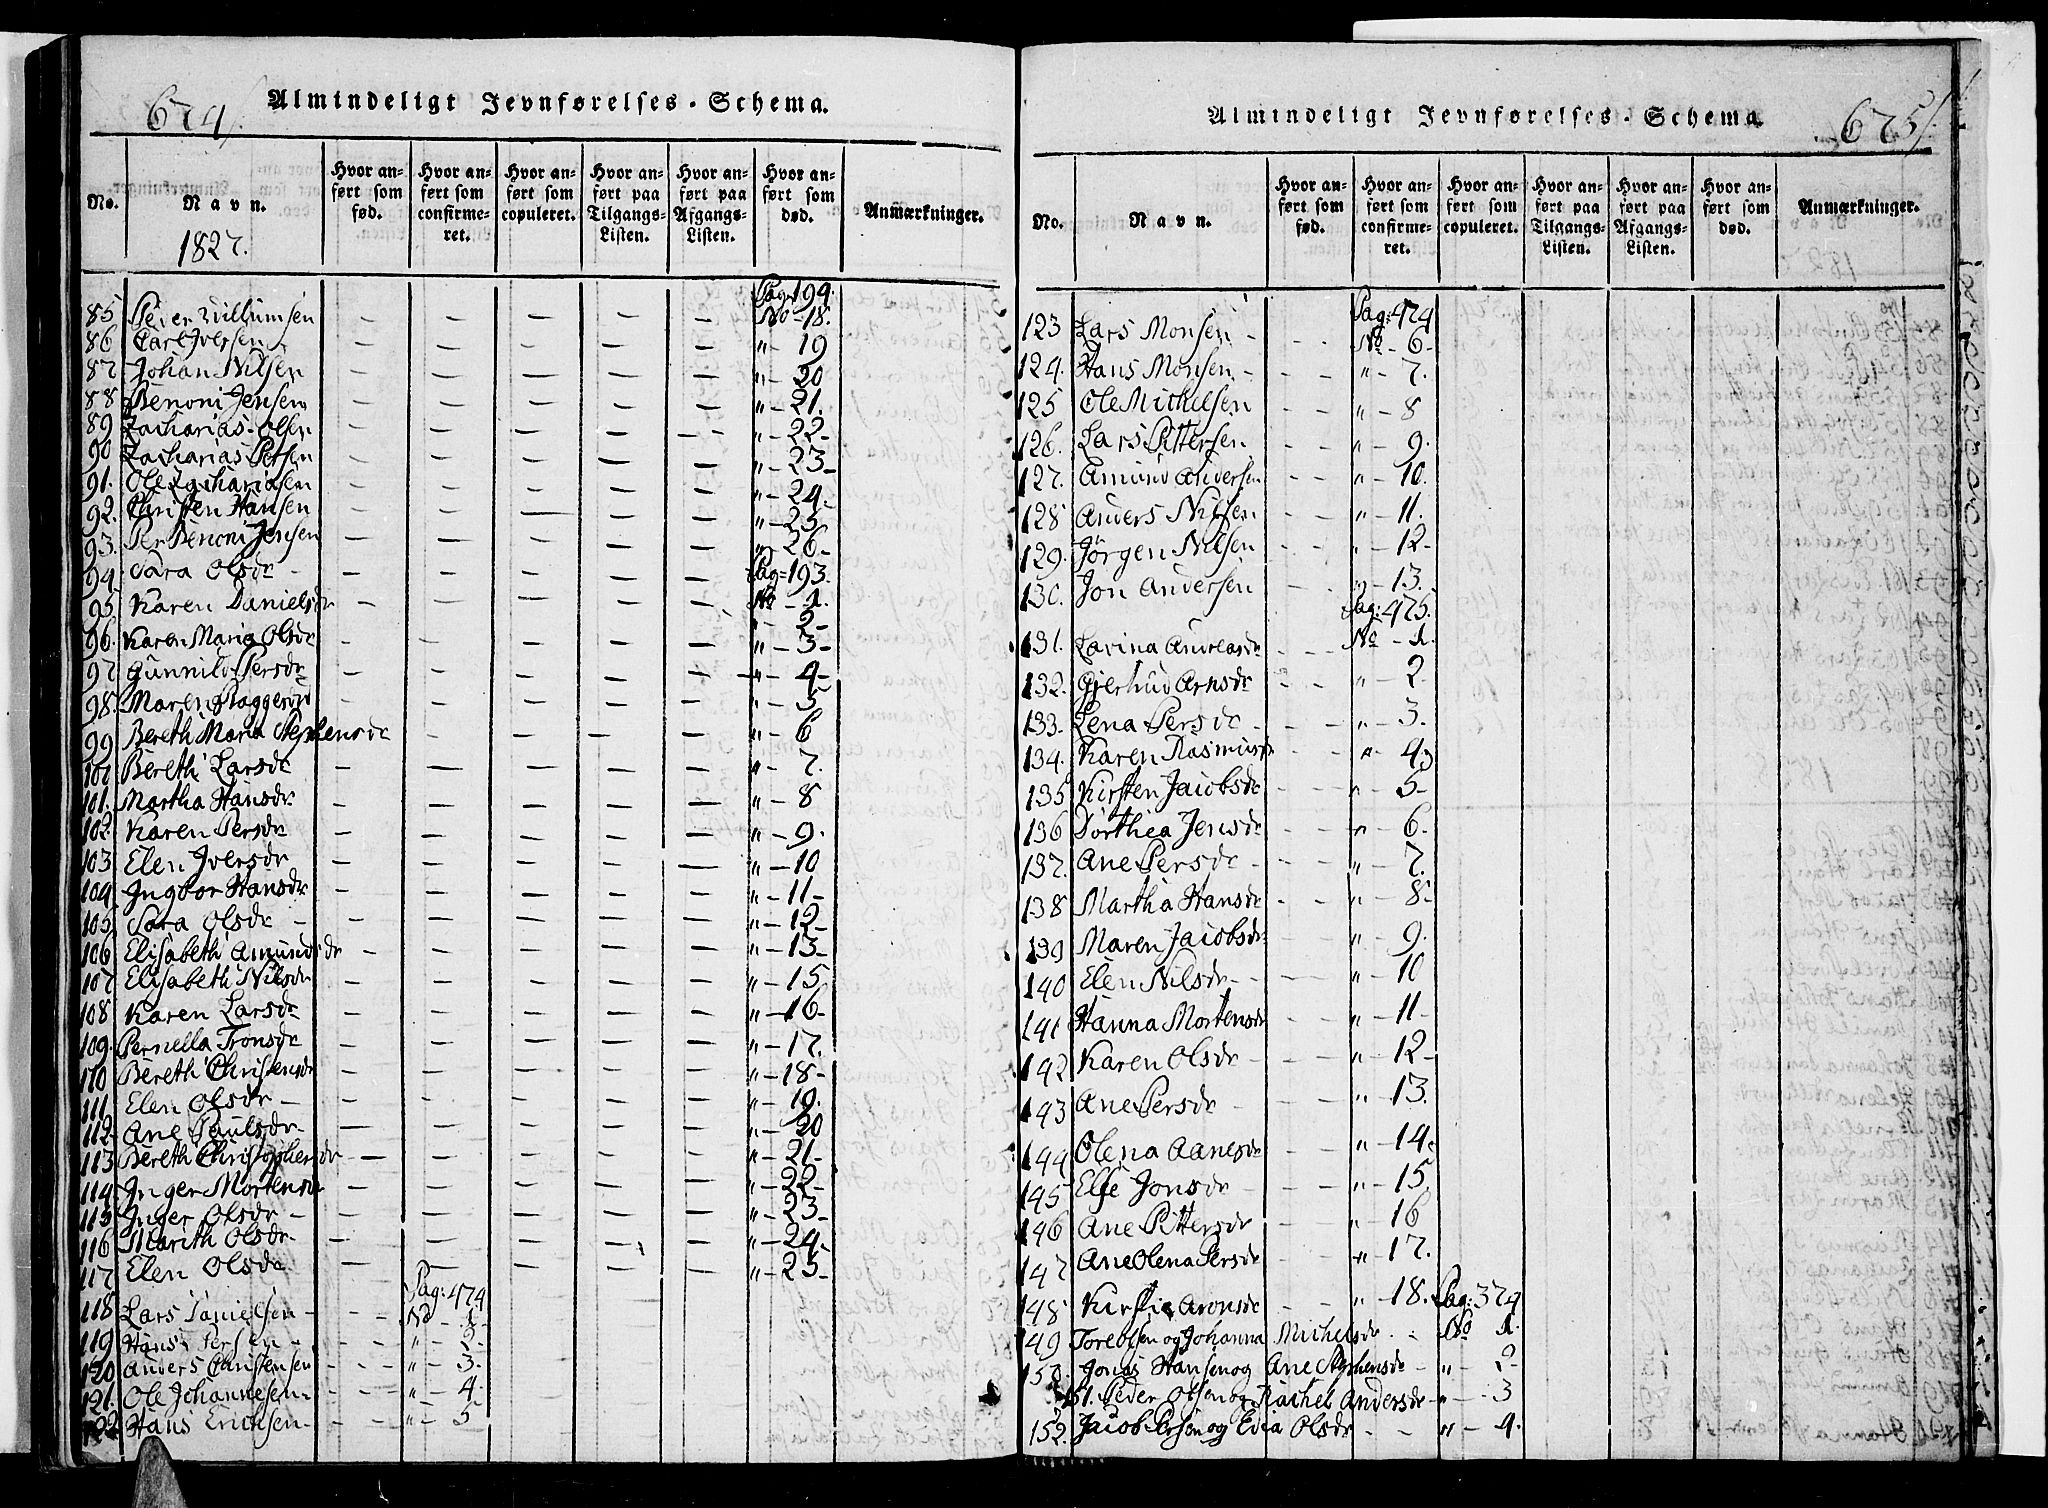 674
Almindeligt Jevnførelses-Schema.
No.
Navn.
1827.
Hvor anført som fød.
Hvor anført som confirmeret.
Hvor anført som copuleret.
Hvor anført paa Tilgangs-Listen.
Hvor anført paa Afgangs-Listen.
Hvor anført som død.
Anmærkninger.
Pag: 194.
85 Peder Villumsen — — — — — No - 18.
86 Carl Iversen — — — — — " - 19
87 Johan Nilsen — — — — — " - 20
88 Benoni Jensen — — — — — " - 21.
89 Zacharias Olsen — — — — — " - 22-
90 Zacharias Persen — — — — — " - 23-
91. Ole Zachariasen — — — — — " - 24-
92. Christen Hansen — — — — — " - 25-
93. Per Benoni Jensen — — — — — " - 26-
Pag: 193.
94 Sara Olsdr — — — — — No - 1.
95 Karen Danielsdr — — — — — " - 2-
96. Karen Maria Olsdr — — — — — " - 3-
97 Gunnild Persdr — — — — — " - 4-
98. Maren — — — — — " - 5-
99 Bereth Maria Stephensdr — — — — " - 6
100 Bereth Larsdr — — — — — " - 7.
101. Martha Hansdr — — — — — " - 8
102. Karen Persdr — — — — — " - 9.
103 Elen Iversdr — — — — — " - 10
104 Ingbor Hansdr — — — — — " - 11-
105 Sara Olsdr — — — — — " - 12-
106 Elisabeth Amundsdr — — — — — " - 13-
107 Elisabeth Nilsdr — — — — — " - 15
108 Karen Larsdr — — — — — " - 16-
109. Pernella Tronsdr — — — — — " - 17.
110 Bereth Christensdr — — — — — " - 18-
111 Elen Olsdr — — — — — " - 19.
112 Ane Paulsdr — — — — — " - 20
113 Bereth Christophersdr — — — — — " - 21-
114 Inger Mortensdr — — — — — " - 22-
115 Inger Olsdr — — — — — " - 23-
116 Marith Olsdr — — — — — " - 24-
117 Elen Olsdr — — — — — " - 25-
Pag: 474
118 Lars Danielsen - - No - 1.
119 Hans Persen - - " - 2-
120 Anders Christensen - - " - 3.
121. Ole Johannesen - - " - 4-
122 Hans Erichsen - - " - 5
675
Almindeligt Jevnførelses-Schema.
No.
Navn.
Hvor anført som fød.
Hvor anført som confirmeret.
Hvor anført som copuleret.
Hvor anført paa Tilgangs-Listen.
Hvor anført paa Afgangs-Listen.
Hvor anført som død.
Anmærkninger.
Pag: 474
123 Lars Monsen - - No - 6-
124. Hans Monsen - - " - 7.
125 Ole Michelsen - - " - 8
126. Lars Pittersen - - " - 9.
127. Amund Andersen - - " - 10.
128 Anders Nilsen - - " - 11.
129. Jörgen Nilsen - - " - 12-
130. Jon Andersen - - " - 13.
Pag: 475.
131. Lavina Andreasdr - - No - 1.
132. Gjertrud Arnsdr - - " - 2
133. Lena Persdr - - " - 3.
134. Karen Rasmusdr - - " - 4
135 Kirsten Jacobsdr - - " - 5-
136 Dorthea Jensdr - - " - 6-
137. Ane Persdr - - " - 7.
138 Martha Hansdr - - " - 8-
139 Maren Jacobsdr - - " - 9.
140 Elen Nilsdr - - " - 10
141 Hanna Mortensdr - - " - 11-
142 Karen Olsdr - - " - 12-
143 Ane Persdr - - " - 13.
144 Olena Aanesdr - - " - 14-
145 Else Jonsdr - - " - 15.
146 Ane Pittersdr - - " - 16
147 Ane Olena Persdr - - " - 17.
148 Kirstie Aronsdr - - " - 18. Pag: 374
149 Tore Olsen og Johanna Michelsdr - - No 1.
150. Jonas Hansen og Ane Stephensdr - " - 2-
151. Peder Olsen og Rachel Andersdr - " - 3
152. Jacob Persen og Edia Olsdr - - " - 4.